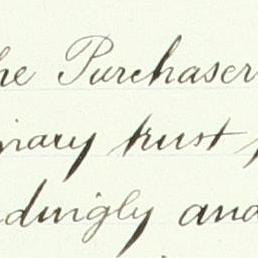 he Purchaser
inary trust
dingly and